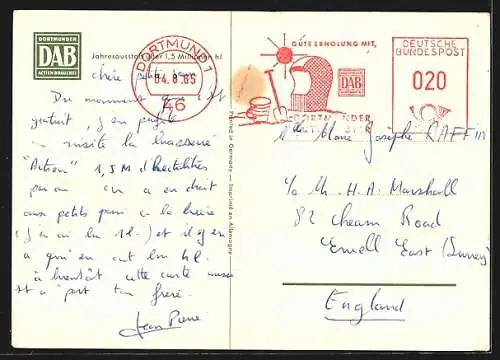 DORTMUNDER
DAB
ACTIEN-BRAUEREI
Jahresausstoß über 1,5 Millionen hl
DORTMUND 1
-4.8.65
46
GUTE ERHOLUNG MIT,
DAB
DORTMUNDER
DEUTSCHE
BUNDESPOST
020
Chère petite
Du moment que c'est
gratuit, j'en profite
on visite la brasserie
"Action" 1,5 M d'hectolitres
par an on a eu droit
aux petits pains à la bière
(j'ai bu 1l.) et il y en
a qui en ont bu
à bientôt cette carte aussi
est à part ton frère.
Jean Pierre
Printed in Germany — Imprimé en Allemagne
Mlle Marie Josèphe RAFFIN
c/o Mr. H. A. Marshall
82 Cheam Road
Ewell East (Surrey)
England